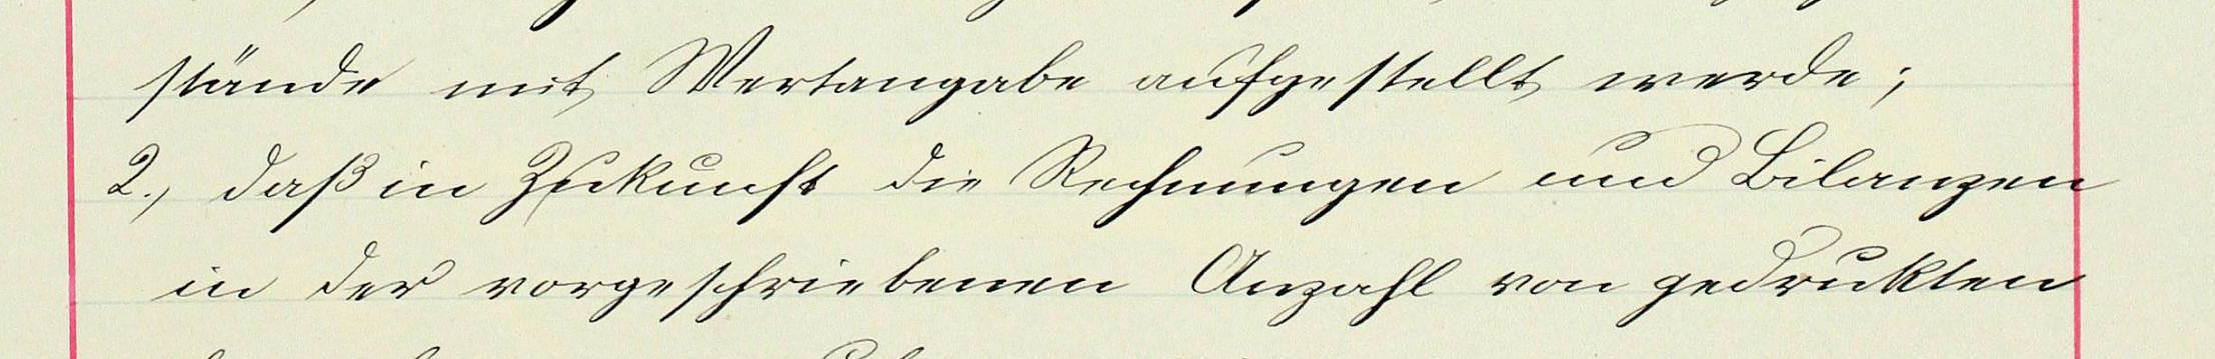 stände mit Wertangabe aufgestellt werde;
2., daß in Zukunft die Rechnungen und Bilanzen
in der vorgeschriebenen Anzahl von gedrukten